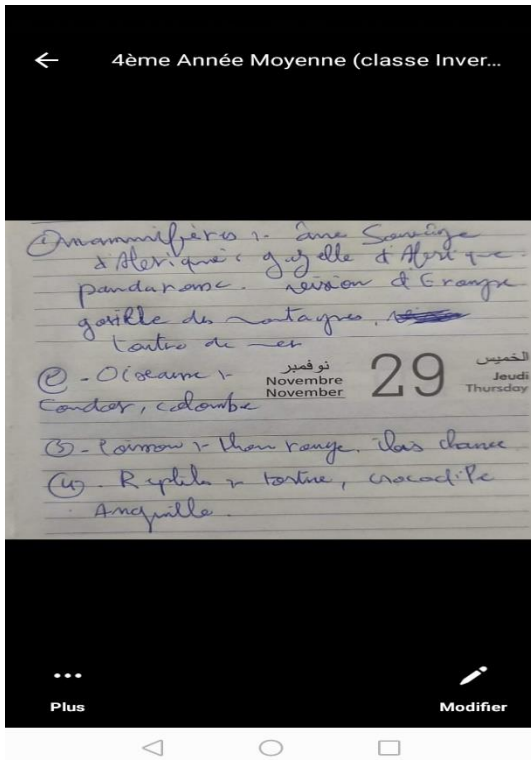 4ème Année Moyenne (classe Inver...
① mammifères :- âne Sauvage
d'Afrique, gazelle d'Afrique
panda rome. vision d'Europe
gorille des montagnes,
Loutre de mer
② - Oiseaux :-
نوفمبر
Novembre
November
29
الخميس
Jeudi
Thursday
Condor, colombe
③ - Poisson :- thon rouge.
④ - Reptiles :- tortue, crocodile
Anguille.
Plus
Modifier